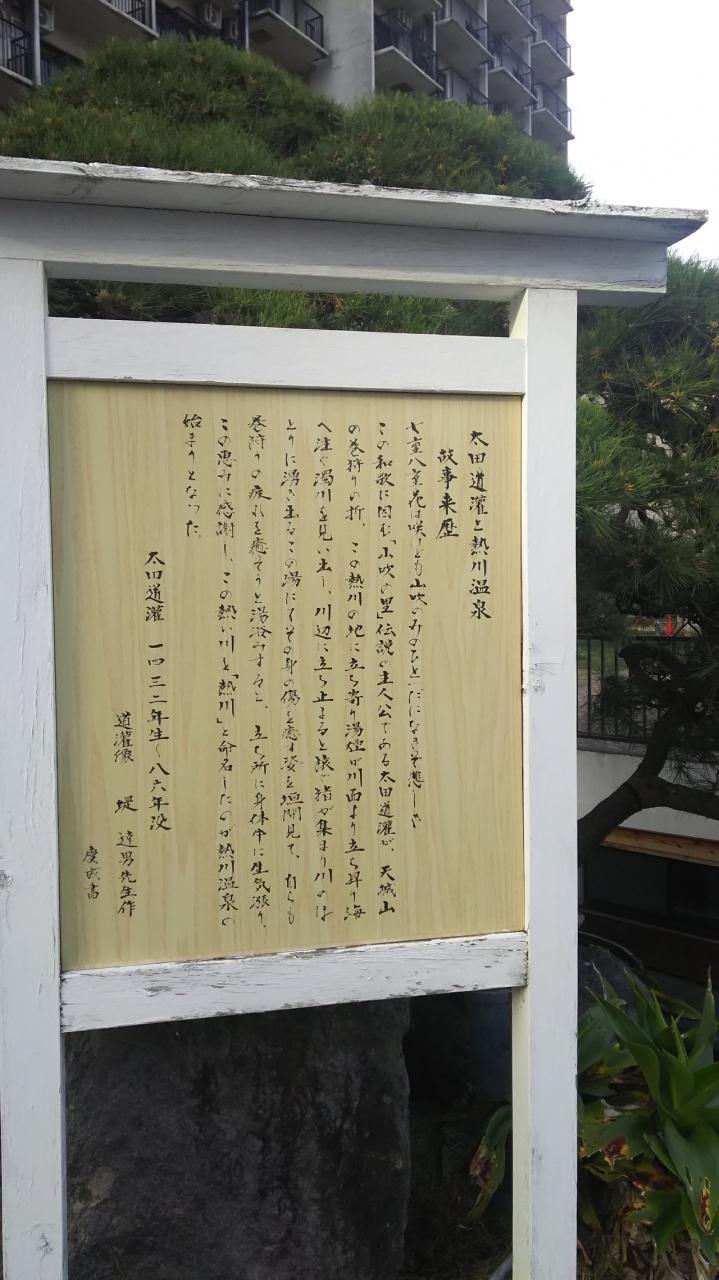 太田道灌と熱川温泉
故事来歴
七重八重花は咲くとも山吹のみのひとつだになきぞ悲しき
この和歌に因む「山吹の里」伝説の主人公である太田道灌が、天城山
の巻狩りの折、この熱川の地に立ち寄り湯煙が川面より立ち昇り海
へ注ぐ濁川を見い出し、川辺に立ち止まると猿や猪が集まり川のほ
とりに湧き出るこの湯にてその身の傷を癒す姿を垣間見て、自らも
巻狩りの疲れを癒そうと湯浴みすると、立ち所に身体中に生気漲り、
この恵みに感謝し、この熱い川を「熱川」と命名したのが熱川温泉の
始まりとなった。
太田道灌 一四三二年生〜八六年没
道灌像 堤 達男先生作
慶成書